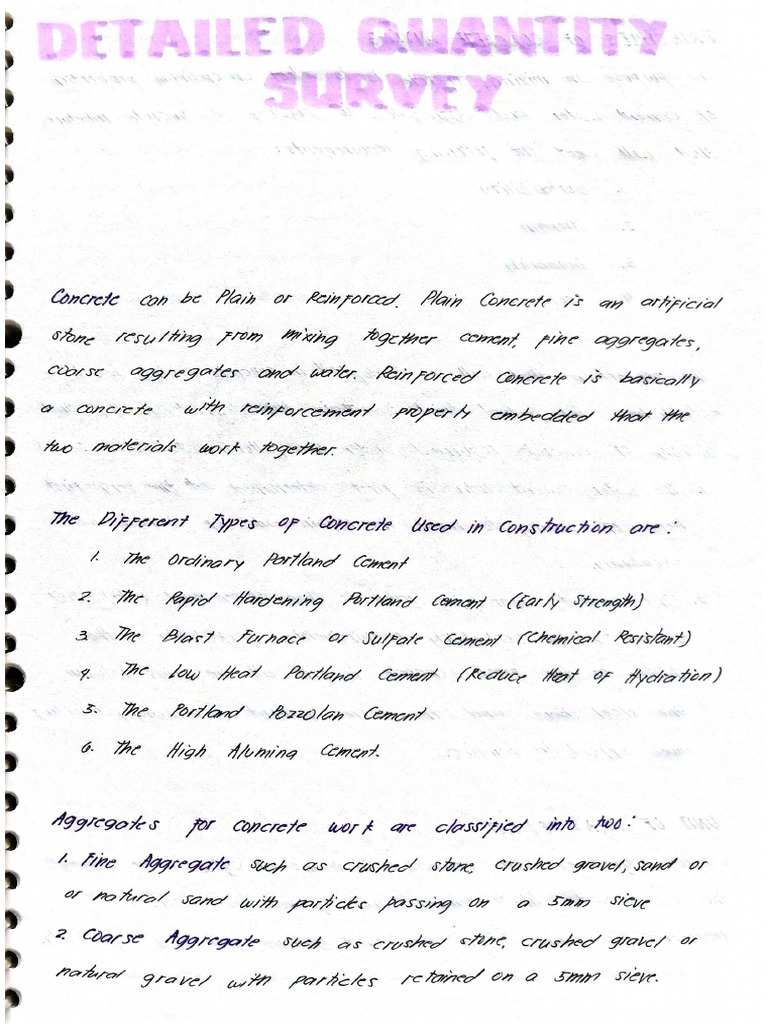 DETAILED QUANTITY
SURVEY
Concrete can be Plain or Reinforced. Plain Concrete is an artificial
stone resulting from mixing together cement, fine aggregates,
coarse aggregates and water. Reinforced Concrete is basically
a concrete with reinforcement properly embedded that the
two materials work together.
The Different Types of Concrete Used in Construction are:
1. The Ordinary Portland Cement
2. The Rapid Hardening Portland Cement (Early Strength)
3. The Blast Furnace or Sulfate Cement (Chemical Resistant)
4. The Low Heat Portland Cement (Reduce Heat of Hydration)
5. The Portland Pozzolan Cement
6. The High Alumina Cement.
Aggregates for concrete work are classified into two:
1. Fine Aggregate such as crushed stone, crushed gravel, sand or
or natural sand with particles passing on a 5mm sieve
2. Coarse Aggregate such as crushed stone, crushed gravel or
natural gravel with particles retained on a 5mm sieve.